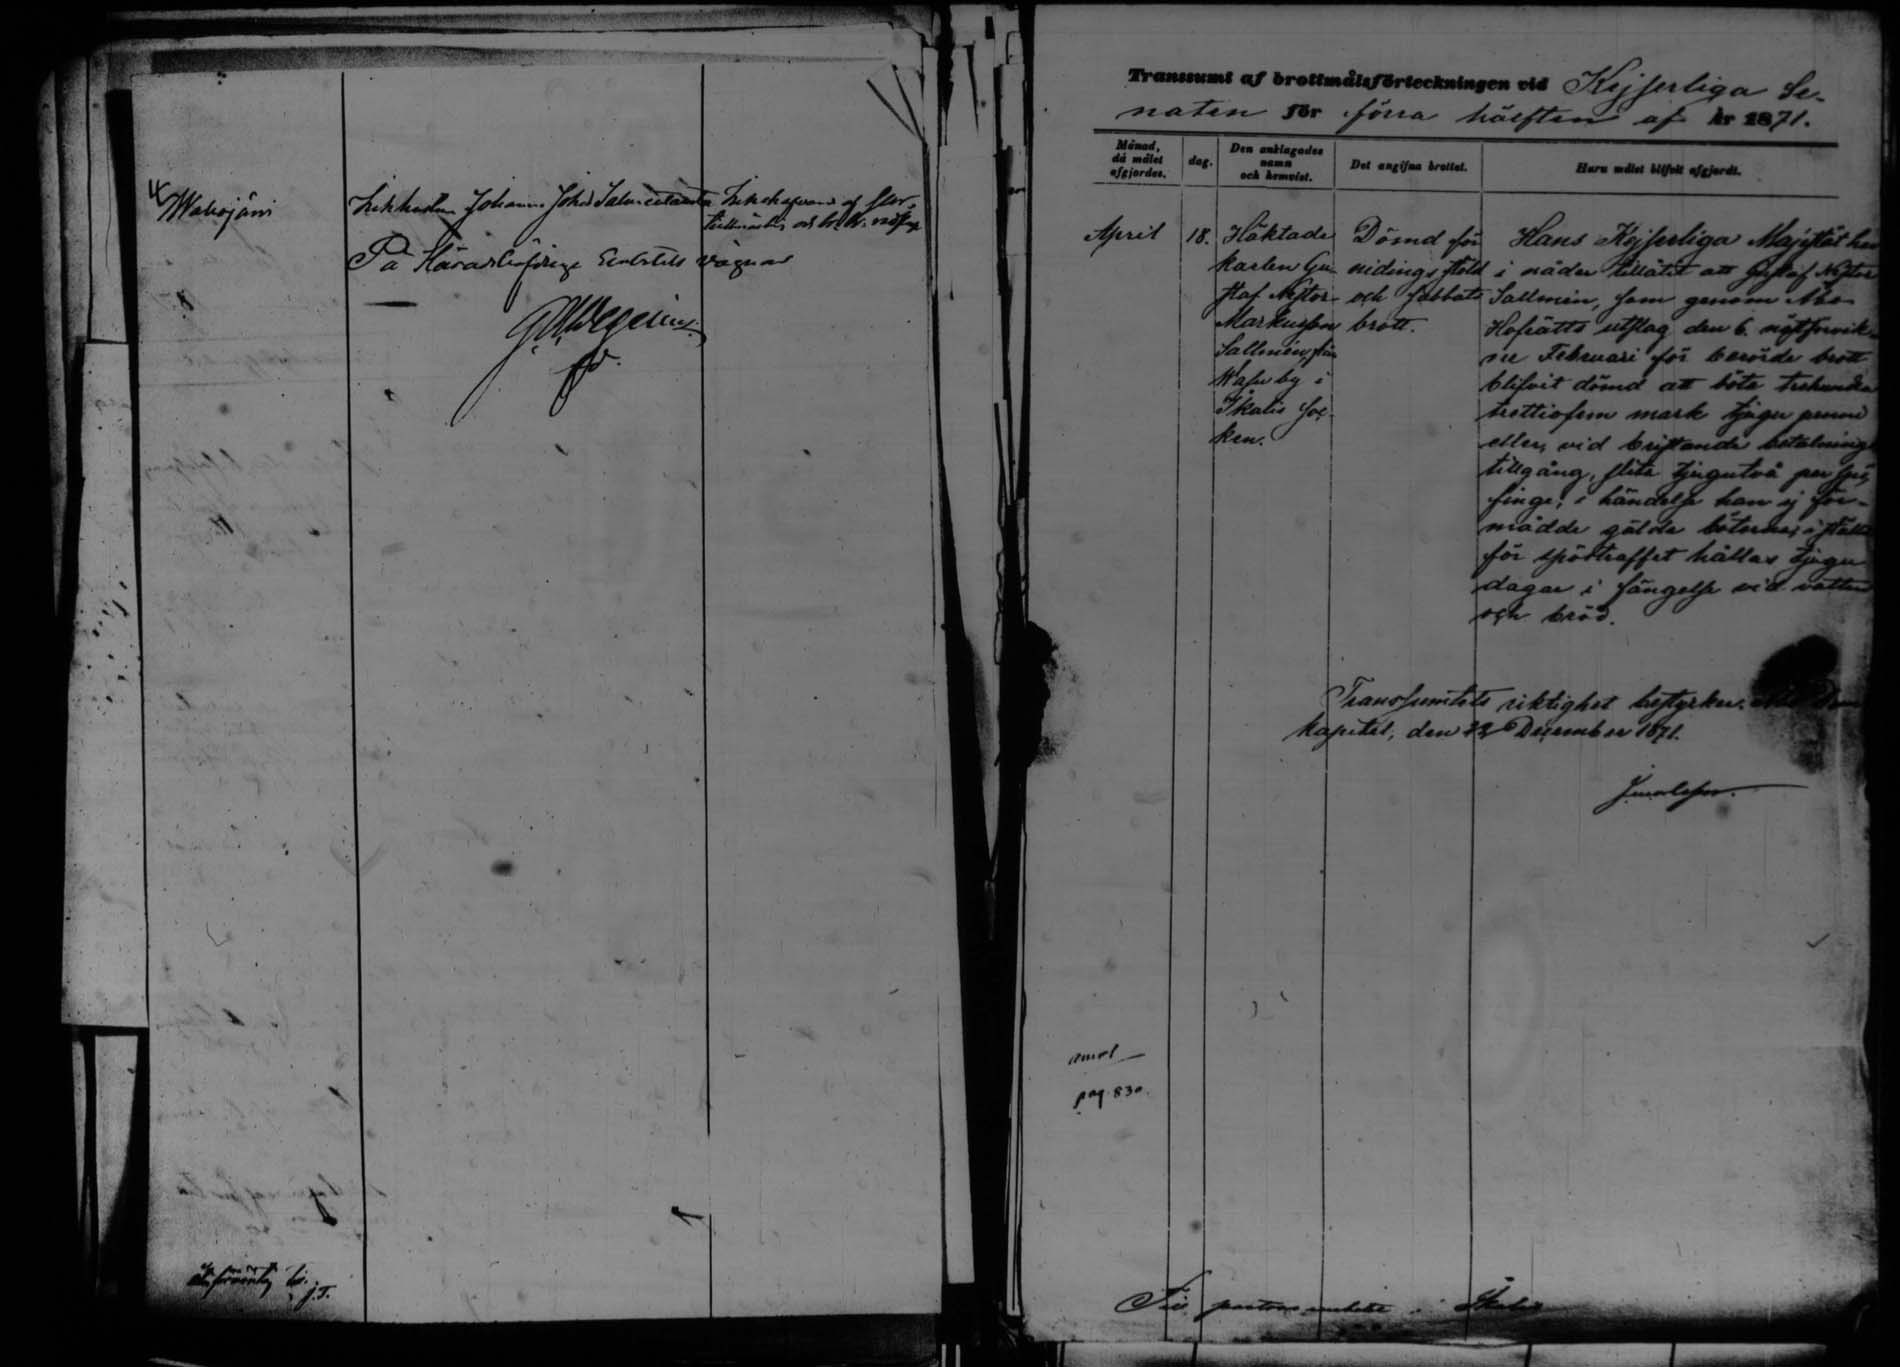 Wahojärvi
Johanna Joh:d:r
På Häradshöfdinge Embetets vägnar
J.T.
Transsumt af brottmålsförteckningen vid Kejserliga Se-
naten för förra hälften af år 1871.
Månad, då målet afgjordes.
dag.
Den anklagades namn och hemvist.
Det angifna brottet.
Huru målet blifvit afgjordt.
April
18.
Häktade
karlen Gu-
staf Nestor
Markusson
Sallmén, från
by i
Ikalis soc-
ken.
Dömd för
nidingsstöld
och sabbats
brott.
Hans Kejserliga Majestät har
i nåder tillåtit att Gustaf Nestor
Sallmén, som genom Åbo
Hofrätts utslag den 6 nästförvik-
ne Februari för berörde brott
blifvit dömd att böta trehundra
trettiofem mark tjugu penni
eller, vid bristande betalnings
tillgång, slita tjugutvå par spö,
finge, i händelse han ej för-
mådde gälda böterna, i stället
för spöstraffet hållas tjugu
dagar i fängelse vid vatten
och bröd.
Transsumtets riktighet bestyrker. Åbo Dom
kapitel, den 22 December 1871.
pag. 830.
Till pastorsembetet i Ikalis